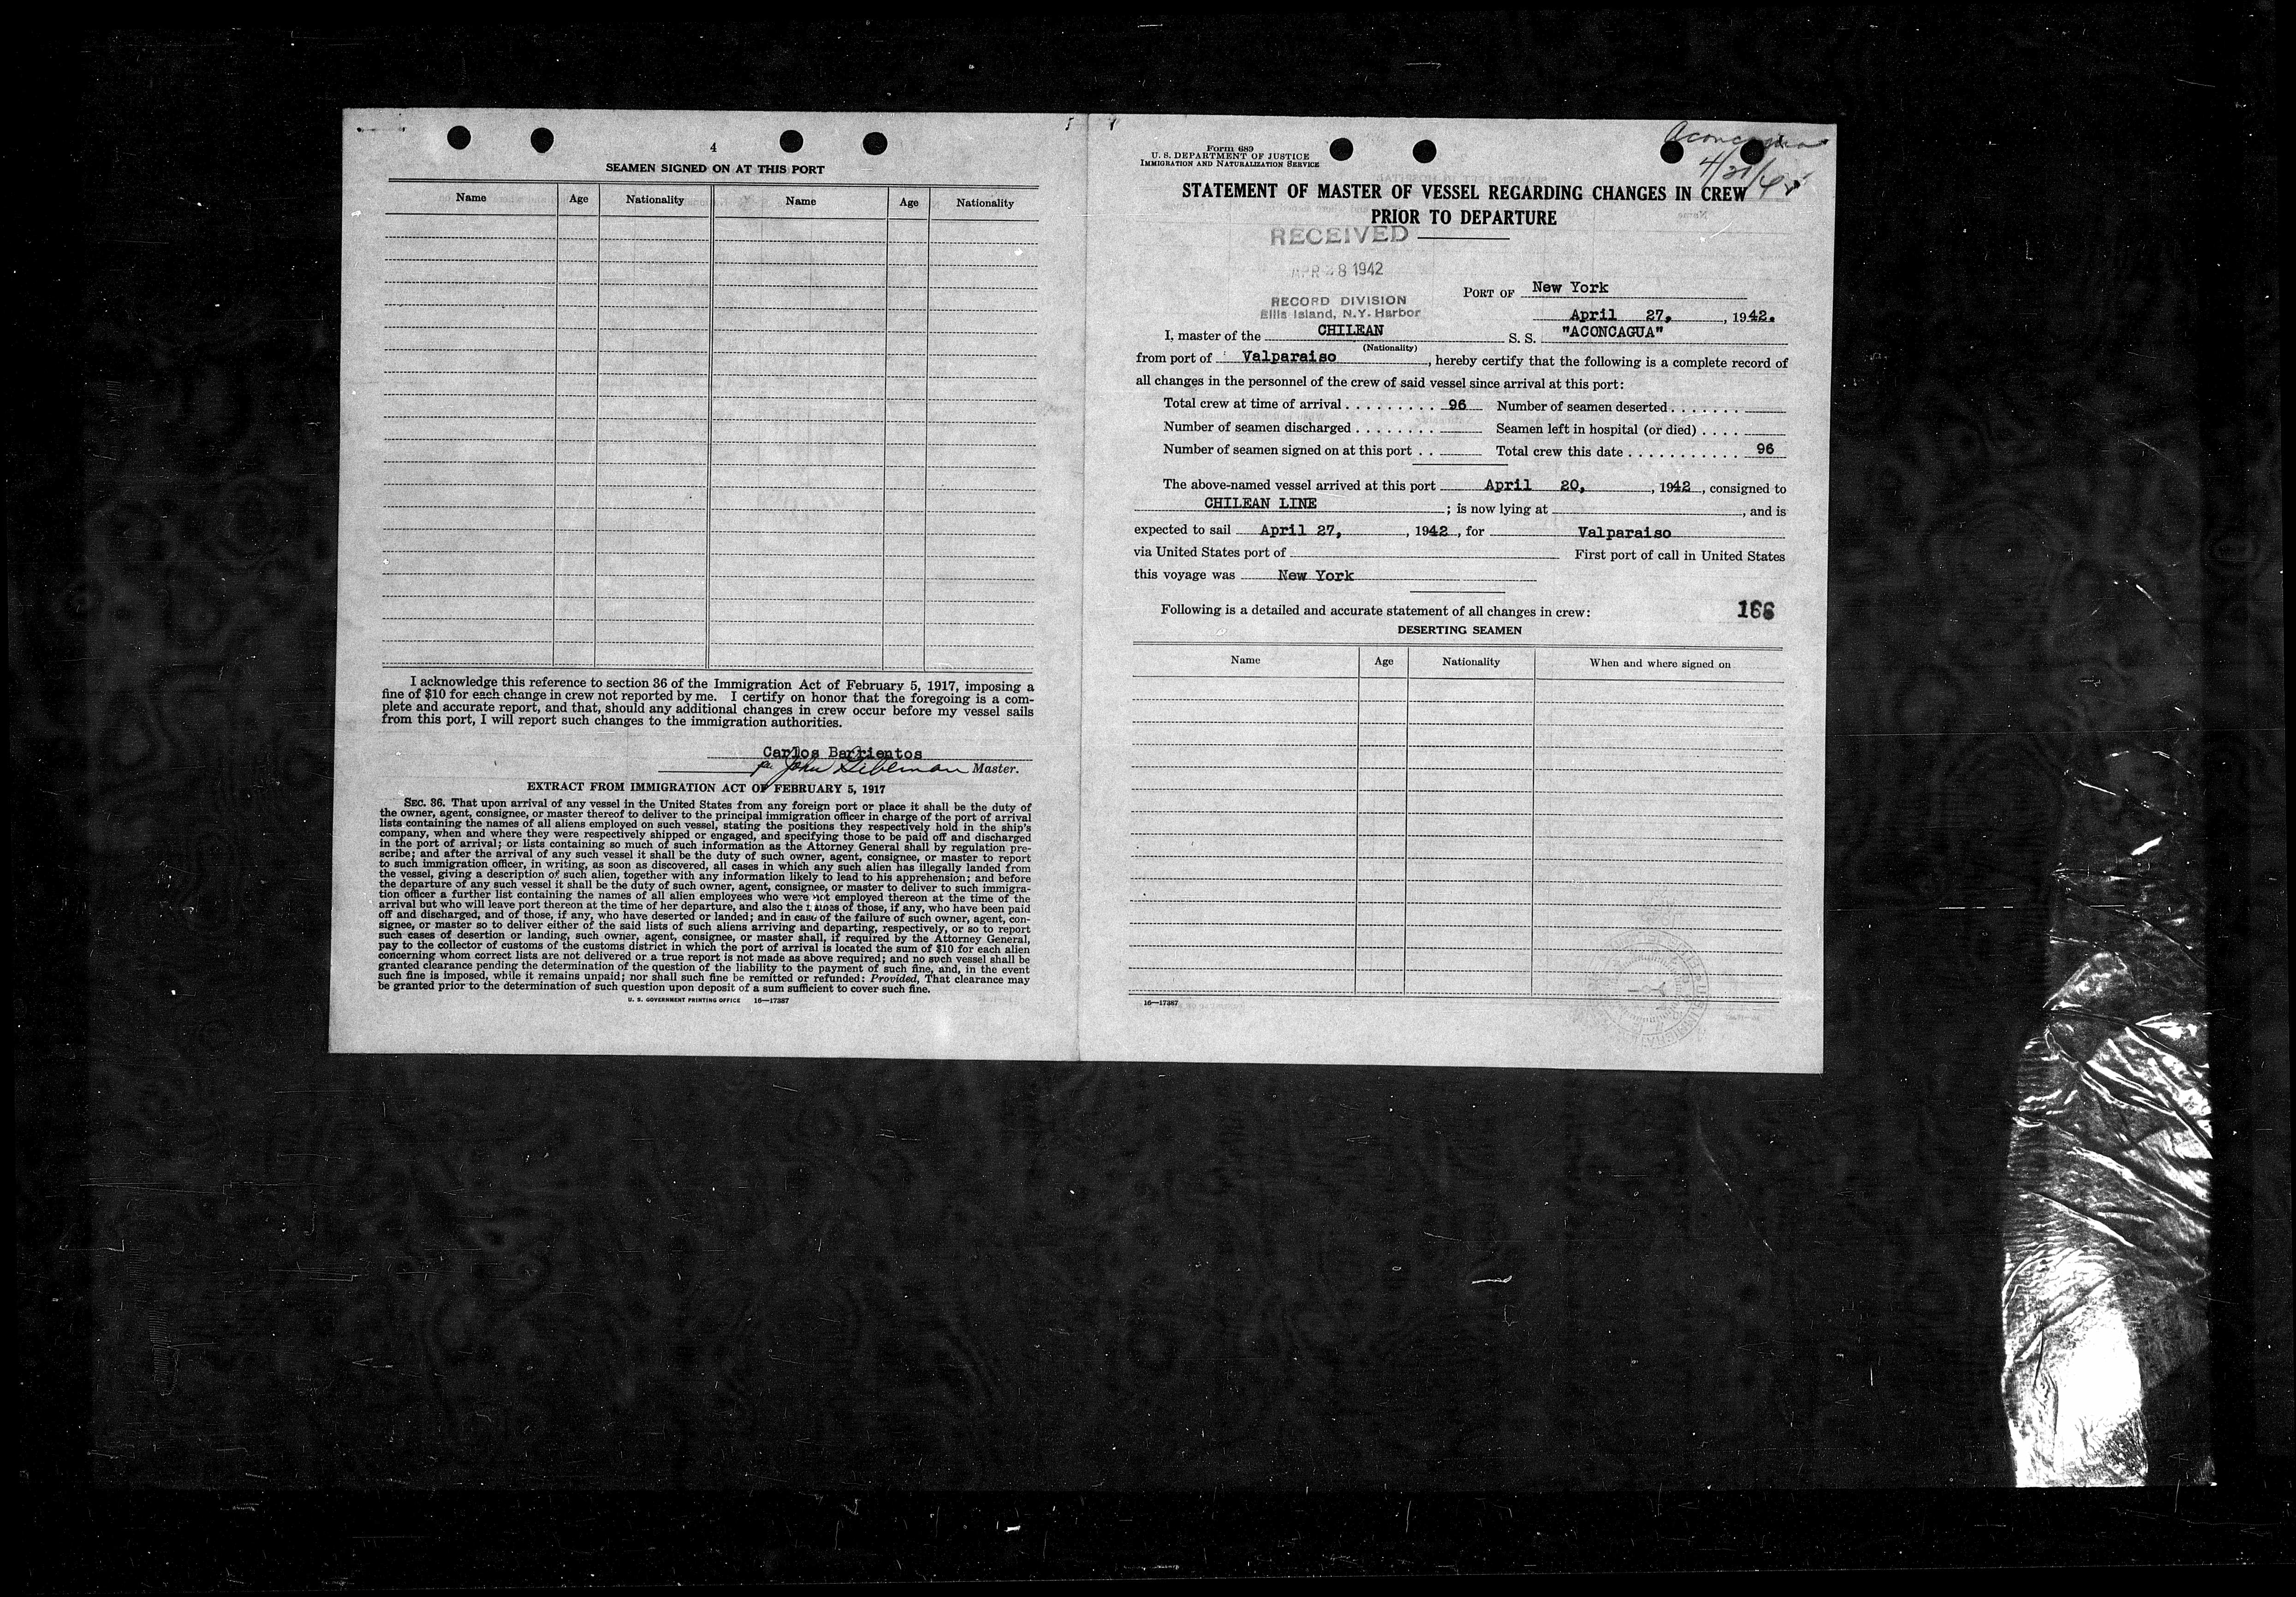 4
SEAMEN SIGNED ON AT THIS PORT
Name Age Nationality Name Age Nationality
I acknowledge this reference to section 36 of the Immigration Act of February 5, 1917, imposing a
fine of $10 for each change in crew not reported by me. I certify on honor that the foregoing is a com-
plete and accurate report, and that, should any additional changes in crew occur before my vessel sails
from this port, I will report such changes to the immigration authorities.
Carlos Barrientos
John Master.
EXTRACT FROM IMMIGRATION ACT OF FEBRUARY 5, 1917
SEC. 36. That upon arrival of any vessel in the United States from any foreign port or place it shall be the duty of
the owner, agent, consignee, or master thereof to deliver to the principal immigration officer in charge of the port of arrival
lists containing the names of all aliens employed on such vessel, stating the positions they respectively hold in the ship's
company, when and where they were respectively shipped or engaged, and specifying those to be paid off and discharged
in the port of arrival; or lists containing so much of such information as the Attorney General shall by regulation pre-
scribe; and after the arrival of any such vessel it shall be the duty of such owner, agent, consignee, or master to report
to such immigration officer, in writing, as soon as discovered, all cases in which any such alien has illegally landed from
the vessel, giving a description of such alien, together with any information likely to lead to his apprehension; and before
the departure of any such vessel it shall be the duty of such owner, agent, consignee, or master to deliver to such immigra-
tion officer a further list containing the names of all alien employees who were not employed thereon at the time of the
arrival but who will leave port thereon at the time of her departure, and also the names of those, if any, who have been paid
off and discharged, and of those, if any, who have deserted or landed; and in case of the failure of such owner, agent, con-
signee, or master so to deliver either of the said lists of such aliens arriving and departing, respectively, or so to report
such cases of desertion or landing, such owner, agent, consignee, or master shall, if required by the Attorney General,
pay to the collector of customs of the customs district in which the port of arrival is located the sum of $10 for each alien
concerning whom correct lists are not delivered or a true report is not made as above required; and no such vessel shall be
granted clearance pending the determination of the question of the liability to the payment of such fine, and, in the event
such fine is imposed, while it remains unpaid; nor shall such fine be remitted or refunded: Provided, That clearance may
be granted prior to the determination of such question upon deposit of a sum sufficient to cover such fine.
U. S. GOVERNMENT PRINTING OFFICE 16—17387
Form 689
U. S. DEPARTMENT OF JUSTICE
IMMIGRATION AND NATURALIZATION SERVICE
Aconcagua
STATEMENT OF MASTER OF VESSEL REGARDING CHANGES IN CREW
PRIOR TO DEPARTURE
RECEIVED
APR 28 1942
RECORD DIVISION
Ellis Island, N.Y. Harbor
PORT OF New York
April 27, , 1942.
I, master of the CHILEAN S. S. "ACONCAGUA"
(Nationality)
from port of Valparaiso , hereby certify that the following is a complete record of
all changes in the personnel of the crew of said vessel since arrival at this port:
Total crew at time of arrival . . . . . . . . . 96 Number of seamen deserted . . . . . . .
Number of seamen discharged . . . . . . . . Seamen left in hospital (or died) . . . .
Number of seamen signed on at this port . . Total crew this date . . . . . . . . . . . 96
The above-named vessel arrived at this port April 20, , 1942 , consigned to
CHILEAN LINE ; is now lying at , and is
expected to sail April 27, , 1942 , for Valparaiso
via United States port of First port of call in United States
this voyage was New York
Following is a detailed and accurate statement of all changes in crew: 166
DESERTING SEAMEN
Name Age Nationality When and where signed on
16—17387